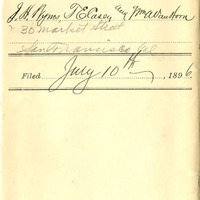 J. H. Ryms, T E Casey and Wm A Van Horn
30 market street
San Francisco Cal
Filed July 10th, 1896.